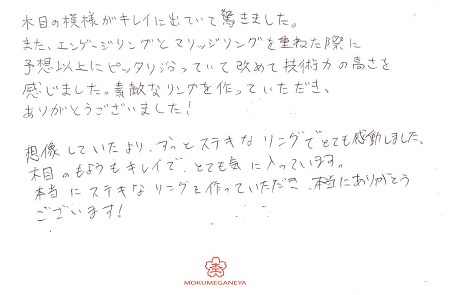 木目の模様がキレイに出ていて驚きました。
また、エンゲージリングとマリッジリングを重ねた際に
予想以上にピッタリ沿っていて改めて技術力の高さを
感じました。素敵なリングを作っていただき、
ありがとうございました!
想像していたより、ずっとステキなリングでとても感動しました。
木目のもようもキレイで、とても気に入っています。
本当にステキなリングを作っていただき、本当にありがとう
ございます!
MOKUMEGANEYA